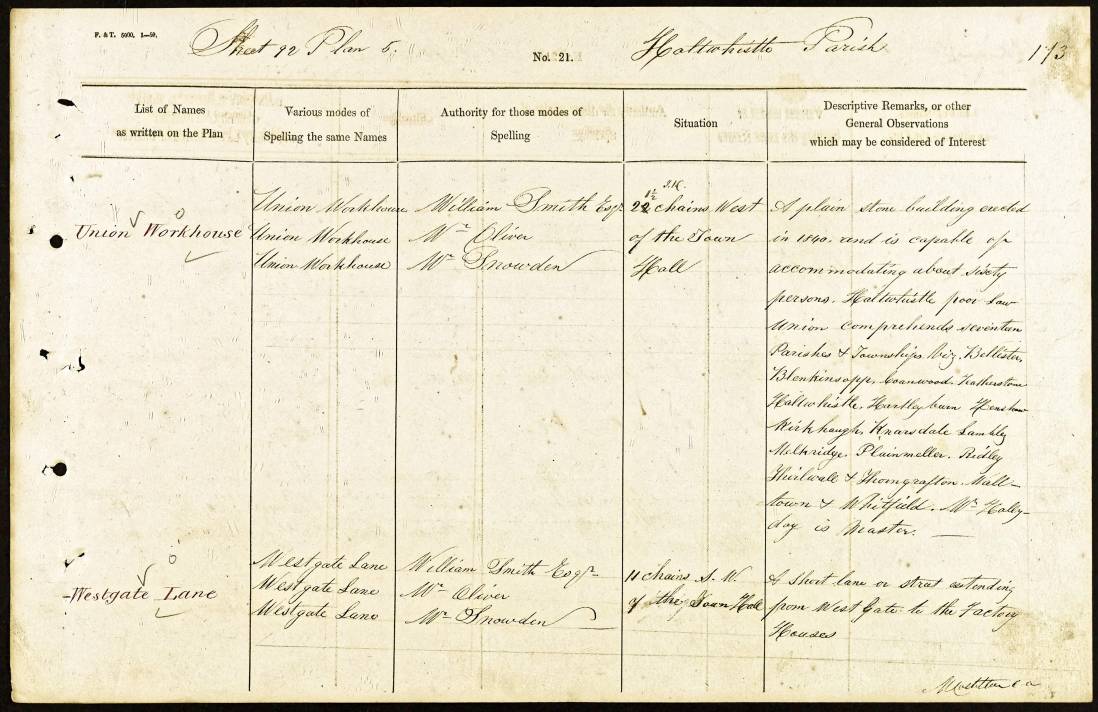 F. & T. 5000. 1—59.
Sheet 92 Plan 5.
No. 21.
Haltwhistle Parish
173
List of Names
as written on the Plan
Various modes of
Spelling the same Names
Authority for those modes of
Spelling
Situation
Descriptive Remarks, or other
General Observations
which may be considered of Interest
Union Workhouse
Union Workhouse
Union Workhouse
Union Workhouse
William Smith Esqr.
Mr Oliver
Mr Snowden
22 chains West
of the Town
Hall
A plain stone building erected
in 1840. and is capable of
accommodating about sixty
persons. Haltwhistle poor Law
Union comprehends seventeen
Parishes & Townships. Viz. Bellister,
Blenkinsopp, Coanwood. Featherstone
Haltwhistle. Hartleyburn Henshaw
Kirkhaugh, Knarsdale Lambley
Melkridge. Plainmeller. Ridley
Thirlwall & Thorngrafton. Wall-
town & Whitfield. Mr Halley-
day is Master.
Westgate Lane
Westgate Lane
Westgate Lane
Westgate Lane
William Smith Esqr.
Mr Oliver
Mr Snowden
11 chains S. W.
of the Town Hall
A short lane or street extending
from West Gate to the Factory
Houses